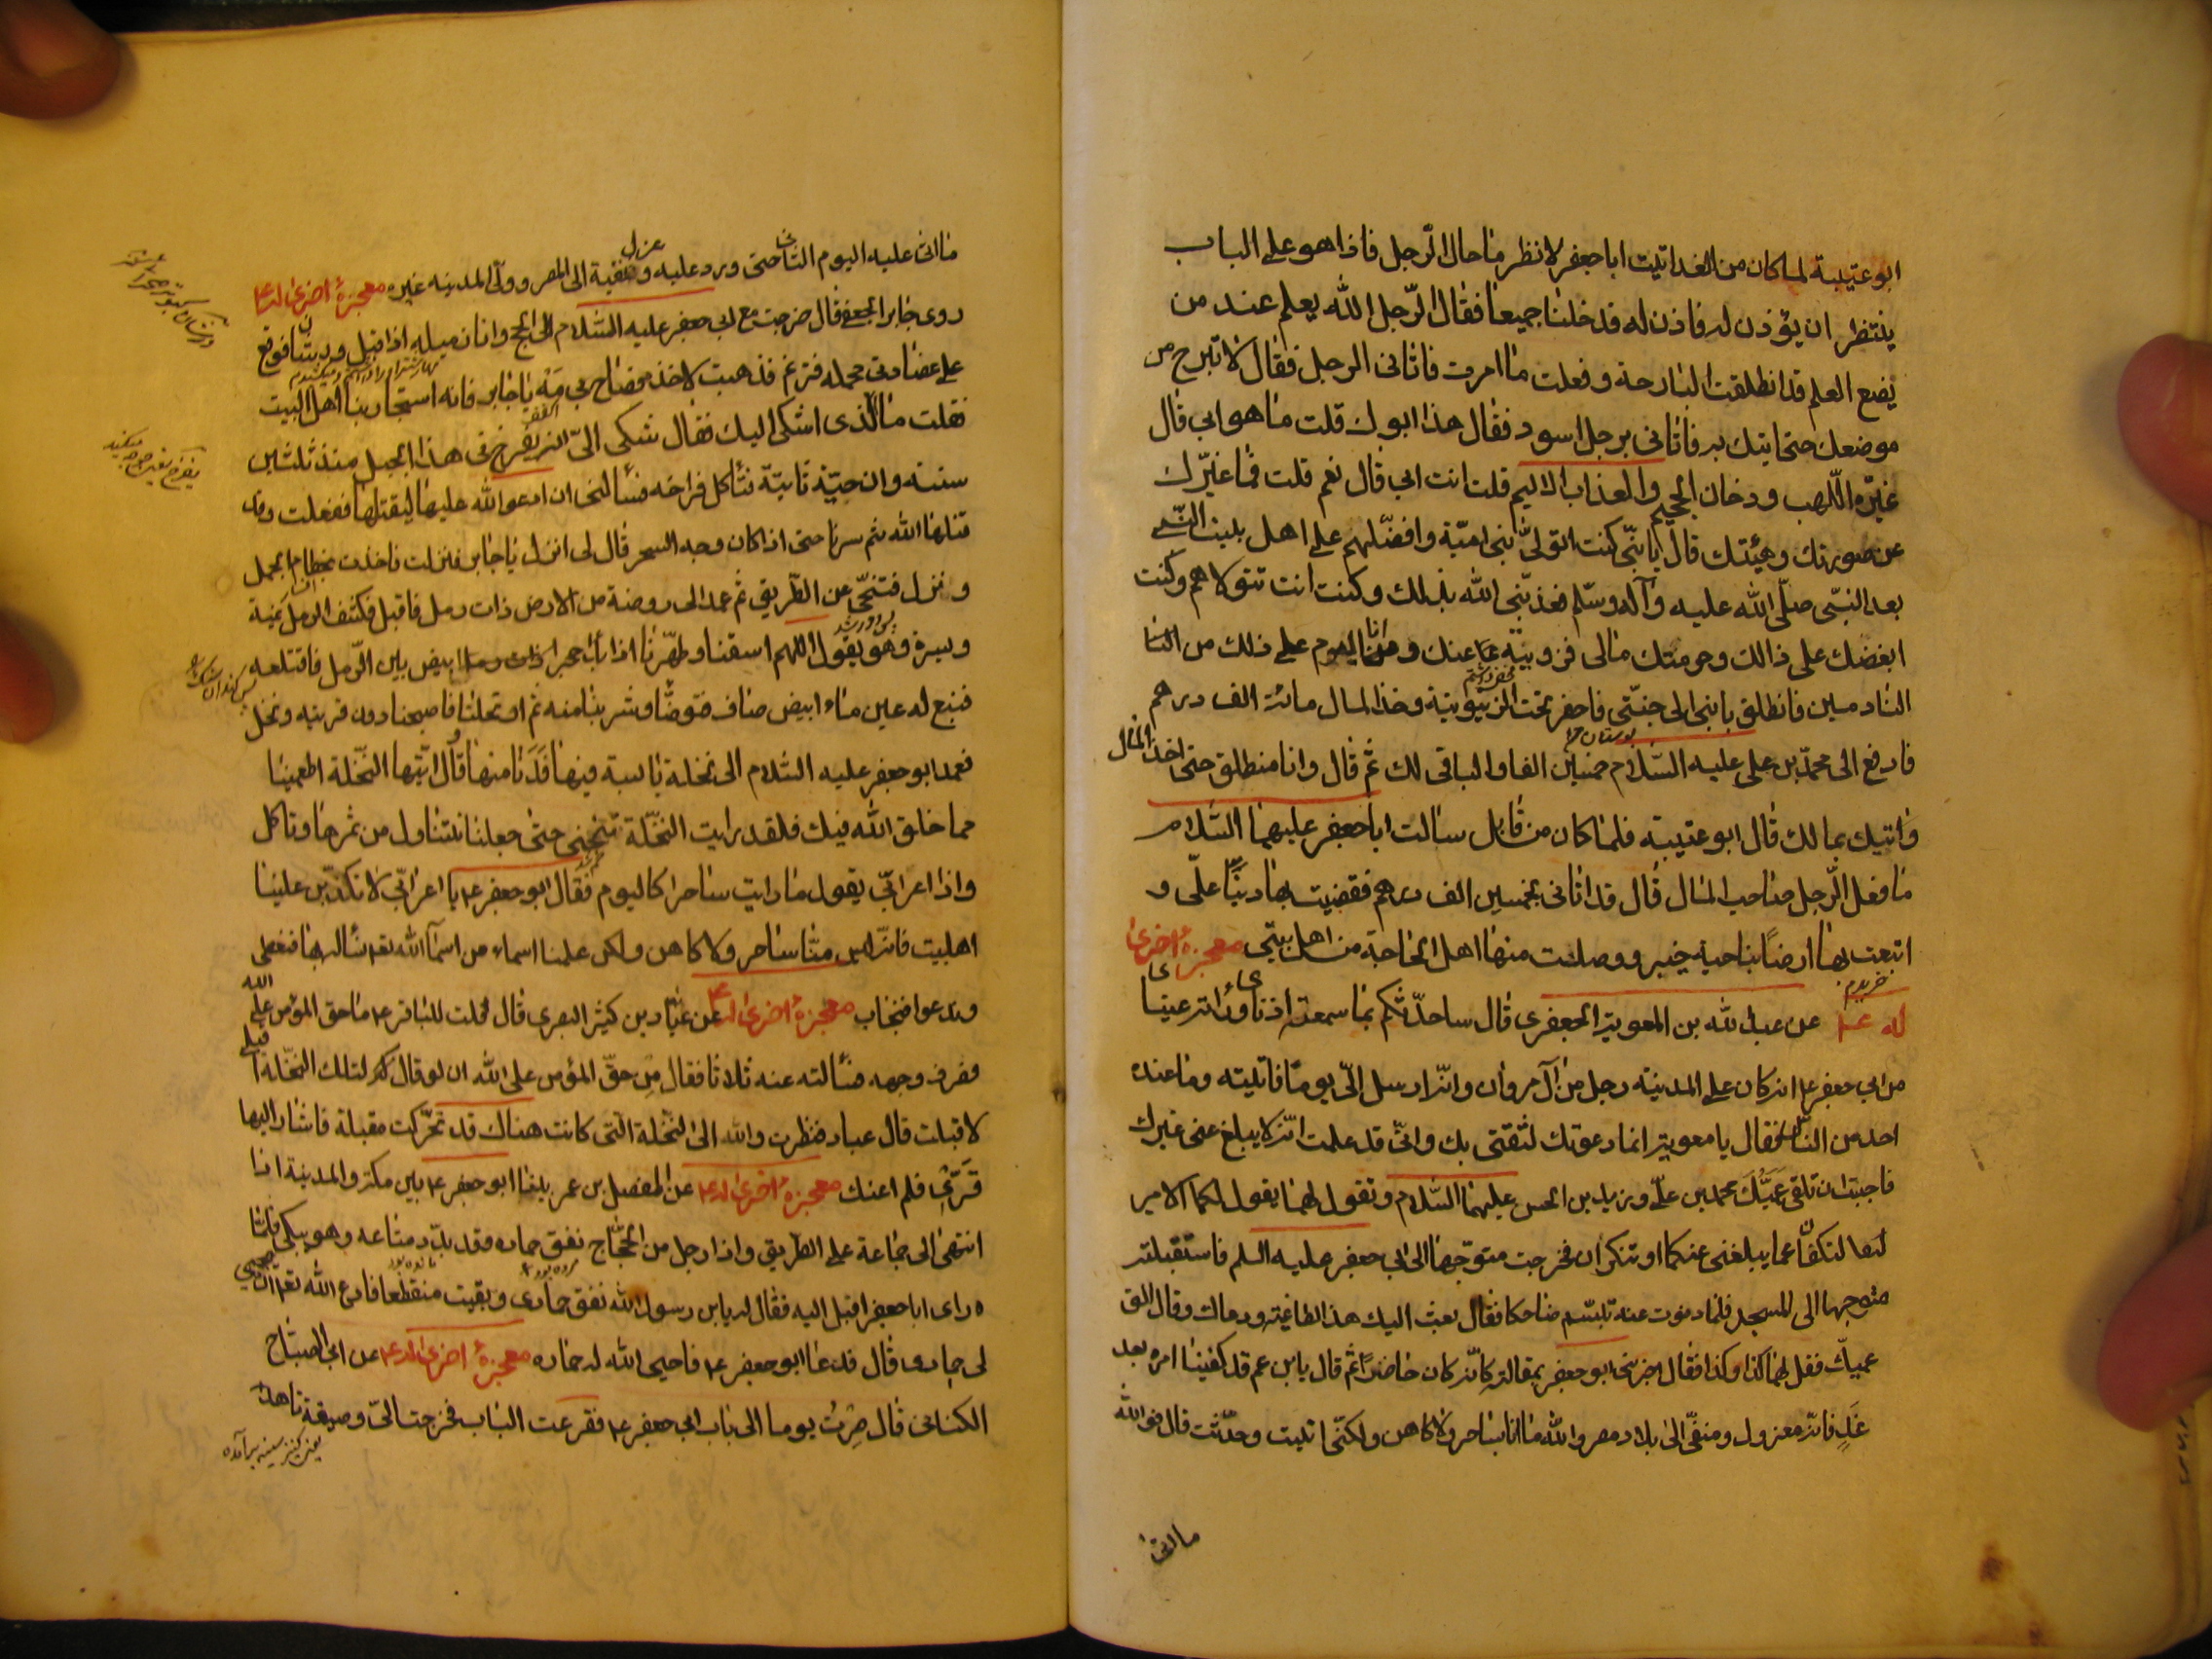 ابو عتيبة لما كان من الغد اتيت ابا جعفر لانظر ما حال الرّجل فاذا هو على الباب
ينتظر ان يؤذن له فاذن له فدخلنا جميعا فقال الرّجل الله يعلم عند من
يضع العلم قد انطلقت البارحة و فعلت ما امرت فاتانى الرجل فقال لا تبرح من
موضعك حتى ايتك به فاتانى برجل اسود فقال هذا ابوك قلت ما هو ابى قال
غيّره اللّهب و دخان الجحيم و العذاب الاليم قلت انت ابى قال نعم قلت فما غيّرك
عن صورتك وهيئتك قال يا بنّى كنت اتولى بنى اميّة وافضّلهم على اهل بليت النّبى
بعد النبّى صلّى الله عليه و آله و سلّم فعذبّنى الله بذلك و كنت انت تتولاهم و كنت
ابغضك على ذالك و حرمتك مالى فزويته عنك و انا اليوم على ذلك من
النادمين فانطلق يا بنى الى جنّتى فاحفر تحت الزيتونة وخذ المال مائة الف درهم
فادفع الى محمّد بن على عليه السّلام خمسين الفا والباقى لك ثم قال وانا منطلق حتى اخذ المال
و اتيك بمالك قال ابو عتيبة فلما كان من قابل سالت ابا جعفر عليهما السّلام
ما فعل الّرجل صاحب المال قال قد اتانى بخمسين الف درهم فقضيت بها دينًا علّى و
ابتعت بها ارضًا بناحية خيبر و وصلت منها اهل الحاجة من اهل بيتى معجزهٔ اخرى
خريدم
له عن عبد الله بن المعوية الجعفرى قال ساحدّثكم بما سمعته اذناى وراته عيناى
من ابى جعفر ع انه كان على المدينة رجل من آل مروان وانّه ارسل الّى يومًا فاتيته وما عنده
احد من النّاس فقال يا معوية انما دعوتك لثقتى بك وانّى قد علمت انّه لا يبلغ عنى غيرك
فاجبت ان تلقى عمّيك محمد بن علّى وزيد بن الحسن عليهما السّلام و تقول لهما يقول لكما الامير
لتكفان عما يبلغنى عنكما او تنكران فخرجت متوجّها الى ابى جعفر عليه السلم فاستقبلته
متوجها الى المسجد فلما دنوت عنه تبسّم ضاحكا فقال بعث اليك هذا الطاغية ودعاك وقال الق
عميك فقل لهما كذا وكذا فقال اخبرنى ابو جعفر بمقالته كانّه كان حاضرًا ثم قال يا بن عم قد كفينا امره بعد
غد فانّه معزول و منفّى الى بلاد مصر والله ما انا بساحر ولا كاهن ولكنّى اتيت وحدّثت قال فوالله
ما اتى
ما اتى عليه اليوم الثانى حتى ورد عليه عزل و نفيه الى المصر و ولّى المدينة غيره معجزهٔ اخرى له ع
روى جابر الجعفى قال خرجت مع ابى جعفر عليه السّلام الى الحج وانا زميله اذا قبل ورشان فوقع
على عضادتى محمله فترنم فذهبت لاخذه فصاح بى مه يا جابر فانه استجار بنا اهل البيت
فقلت ما الّذى اشتكى اليك فقال شكى الىّ انه يفرخ فى هذا الجبل منذ ثلثين
سنة وان حيّة تاتيه تأكل فراخه فسألنى ان ادعو الله عليها ليقتلها ففعلت وقد
قتلها الله ثم سرنا حتى اذا كان وجه السحر قال لى انزل يا جابر فنزلت فاخذت بخطام الجمل
و نزل فتنحّى عن الطّريق ثم عمد الى روضة من الارض ذات رمل فاقبل فكشف الرمل يمنة
و يسرة وهو يقول اللهم اسقنا و طهّرنا اذا بدا حجر ابيض بين الرّمل فاقتلعه
فنبع له عين ماء ابيض صاف فتوضّأ و شربنا منه ثم ارتحلنا فاصبحنا دون قرية ونخل
فعمد ابو جعفر عليه السّلام الى نخلة يابسة فيها فدنا منها و قال ايّتها النّخلة اطعمينا
مما خلق الله فيك فلقد رايت النخّلة تنحنى حتى جعلنا نتناول من ثمرها و ناكل
واذا اعرابّى يقول ما رايت ساحرا كاليوم فقال ابو جعفر ع يا اعرابّى لا تكذّبن علينا
اهلبيت فانّه ليس منّا ساحر ولا كاهن ولكن علمنا اسماء من اسمآ الله تعـ نسأل بها فنعطى
و ندعو فنجاب معجزهٔ اخرى له ع عن عبّاد بن كثير البصرى قال قلت للباقر ع ما حق المؤمن على الله
فصرف وجهه فسألته عنه ثلاثا فقال من حقّ المؤمن على الله ان لو قال لتلك النخّلة اقبلى
لاقبلت قال عباد فنظرت والله الى النخّلة التى كانت هناك قد تحرّكت مقبلة فاشار اليها
قرّى فلم اعنك معجزهٔ اخرى له ع عن المفضل بن عمر بينا ابو جعفر ع بين مكة والمدينة اذا
انتهى الى جماعة على الطّريق واذا رجل من الحجّاج نفق حماره و قد بدّد متاعه وهو يبكى فلمّا
راى ابا جعفر اقبل اليه فقال له يا بن رسول الله نفق حمارى و بقيت منقطعا فادع الله تعـ ان يحيى
لى حمارى قال فدعا ابو جعفر ع فاحيى الله له حماره معجزهٔ اخرى له ع عن ابى الصّباح
الكنانى قال صرت يوما الى باب ابى جعفر ع فقرعت الباب فخرجت الىّ وصيفة ناهد